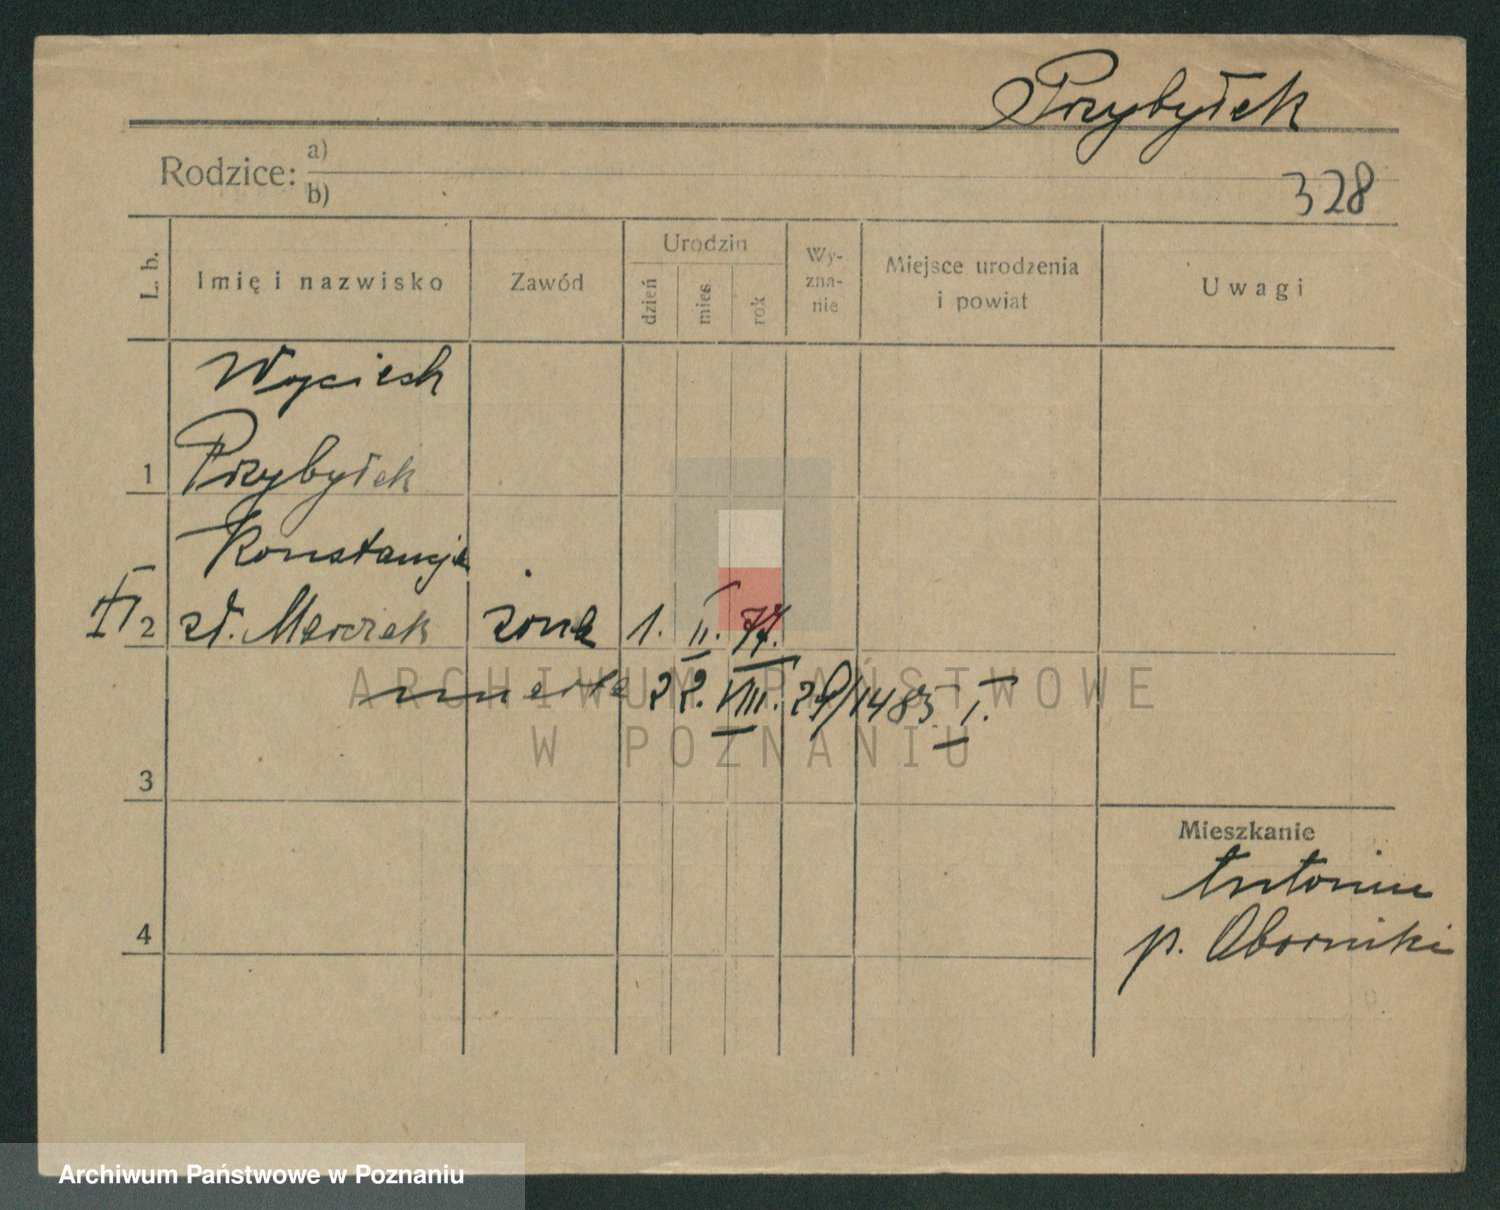 Przybyłek
Rodzice: a)
b)
328
L. b.
Imię i nazwisko
Zawód
Urodzin
dzień
mies
rok
Wy-
zna-
nie
Miejsce urodzenia
i powiat
Uwagi
Wojciech
1 Przybyłek
Konstancja
2 zd. Marczak żona 1. II. 77.
umarła 22. VIII. 29/1485 I.
ARCHIWUM PAŃSTWOWE
W POZNANIU
3
Mieszkanie
Antonin
4
p. Oborniki
Archiwum Państwowe w Poznaniu